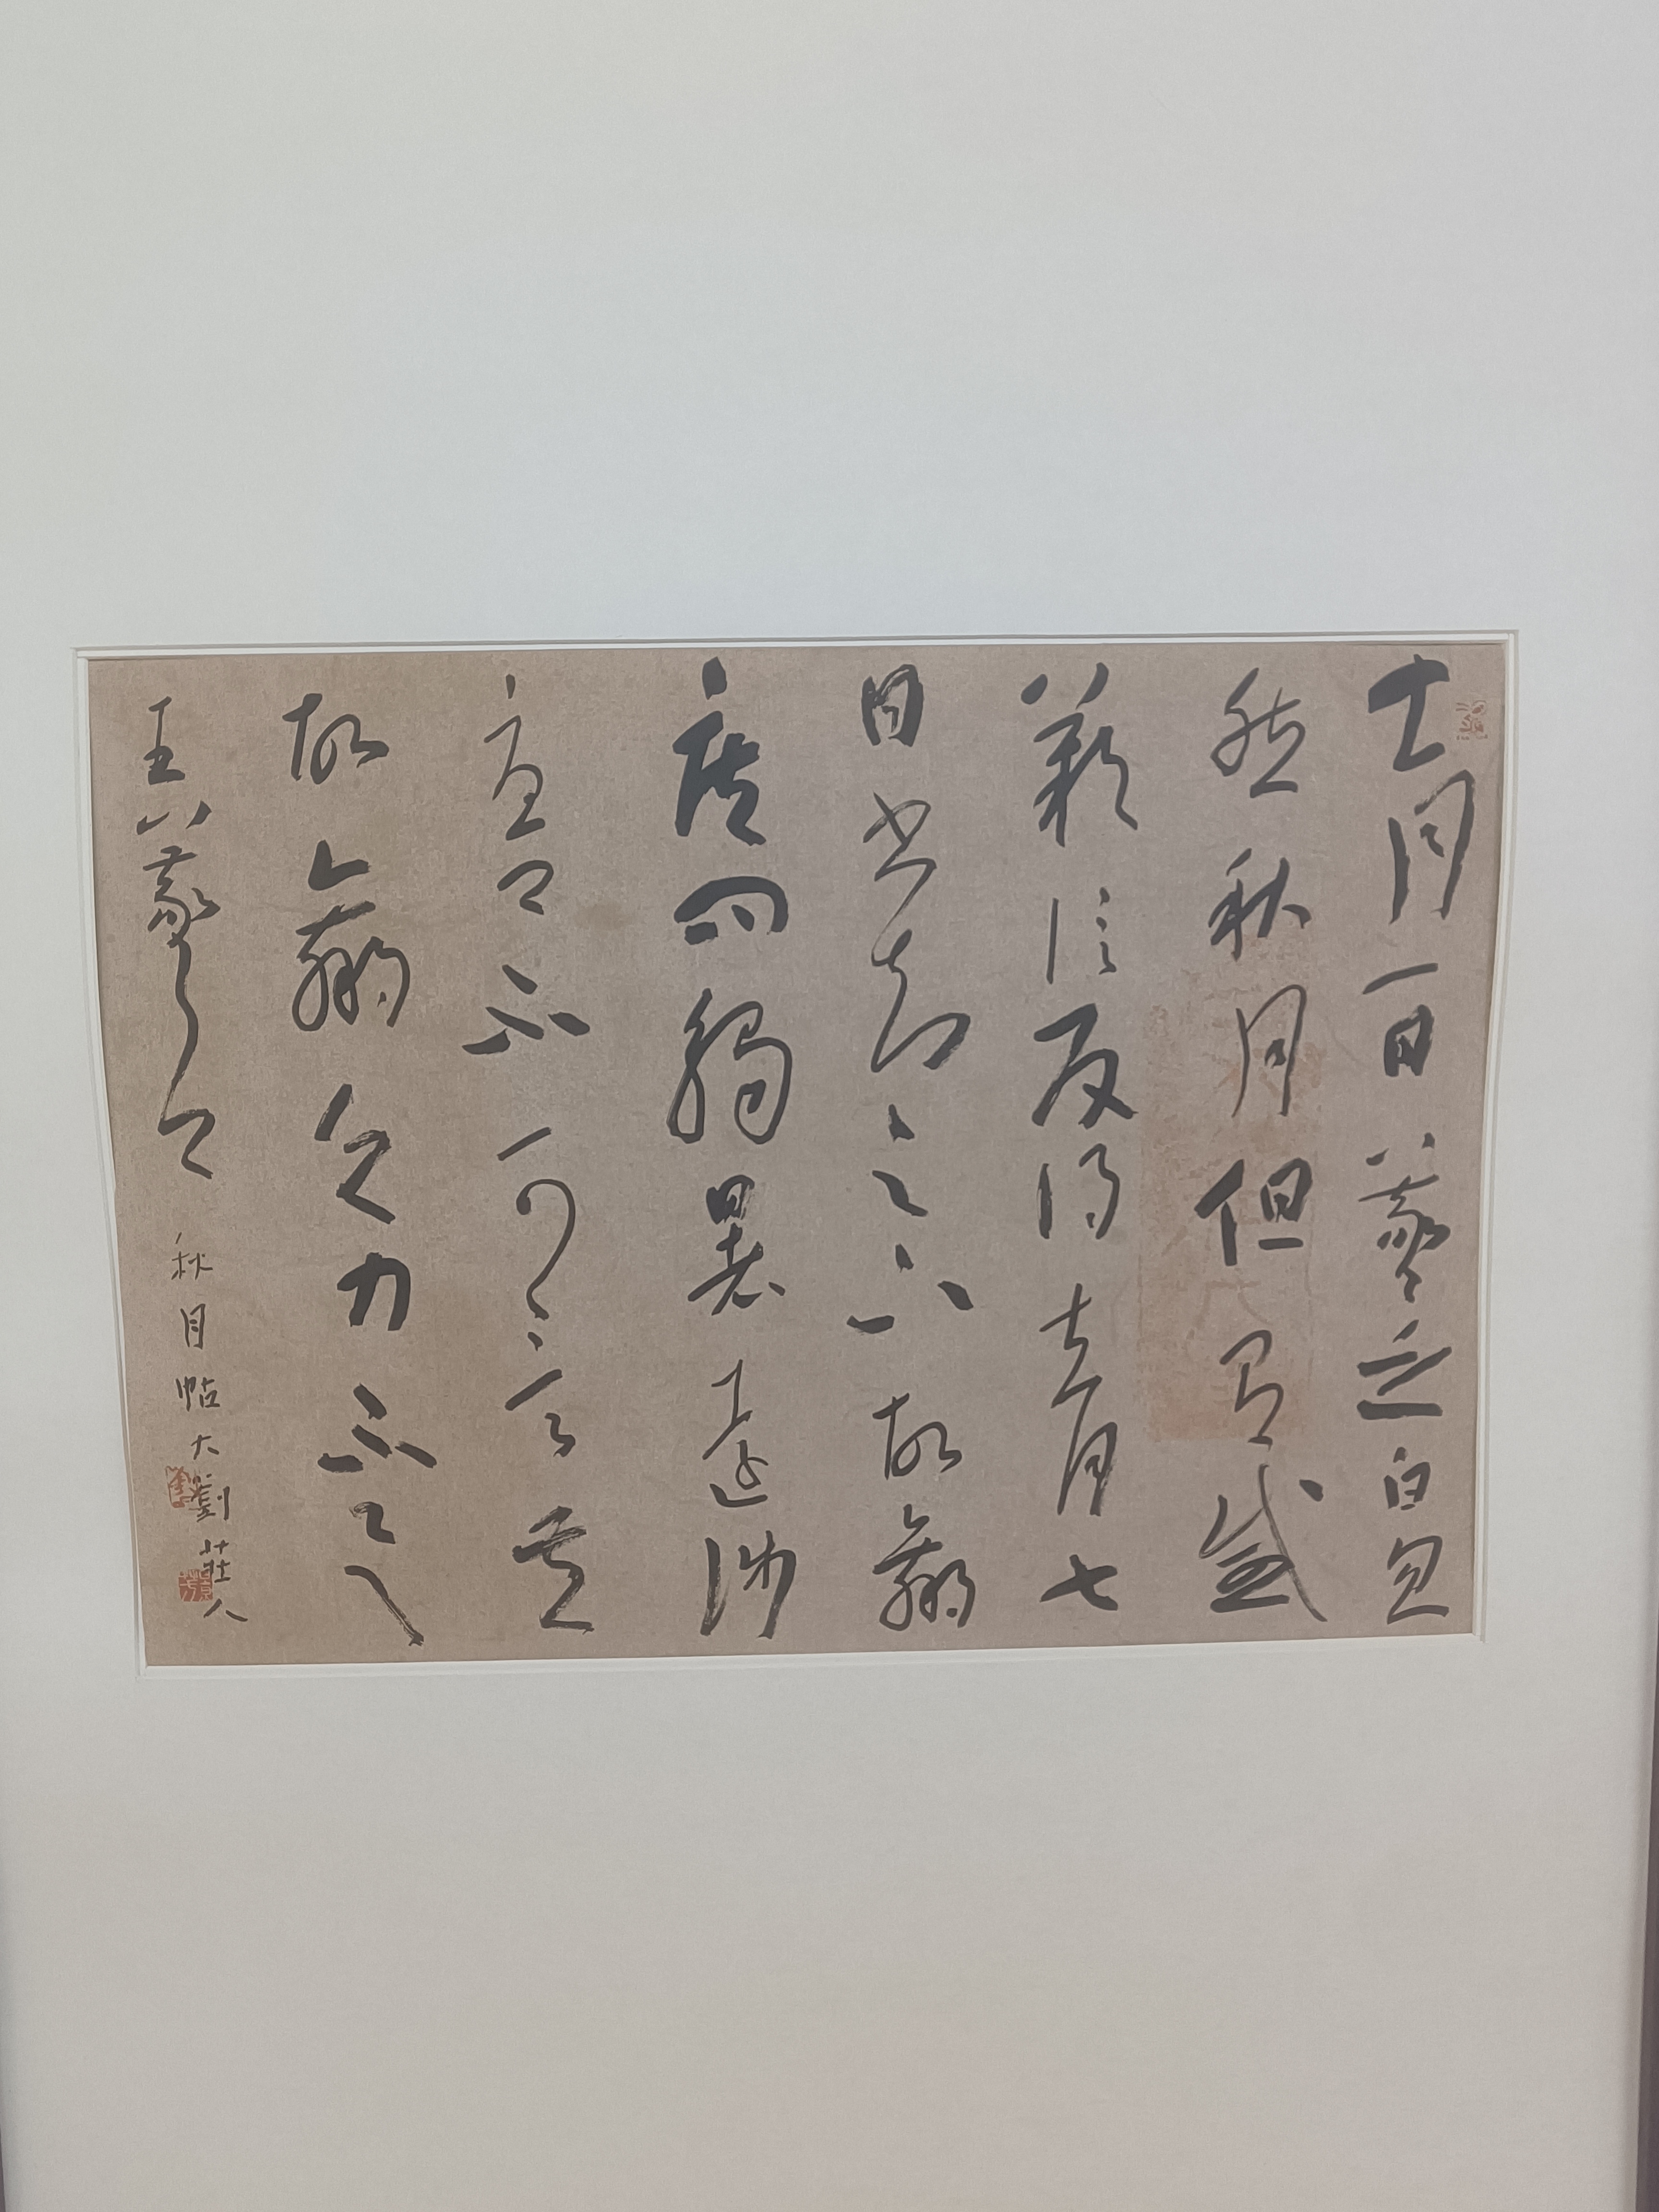 七月一日羲之白忽
然秋月但有感
歎信反得去月七
日書知足下故羸
疾問觸暑遠涉
憂卿不可言吾
故羸乏力不具
王羲之白 秋月帖 大劉莊人